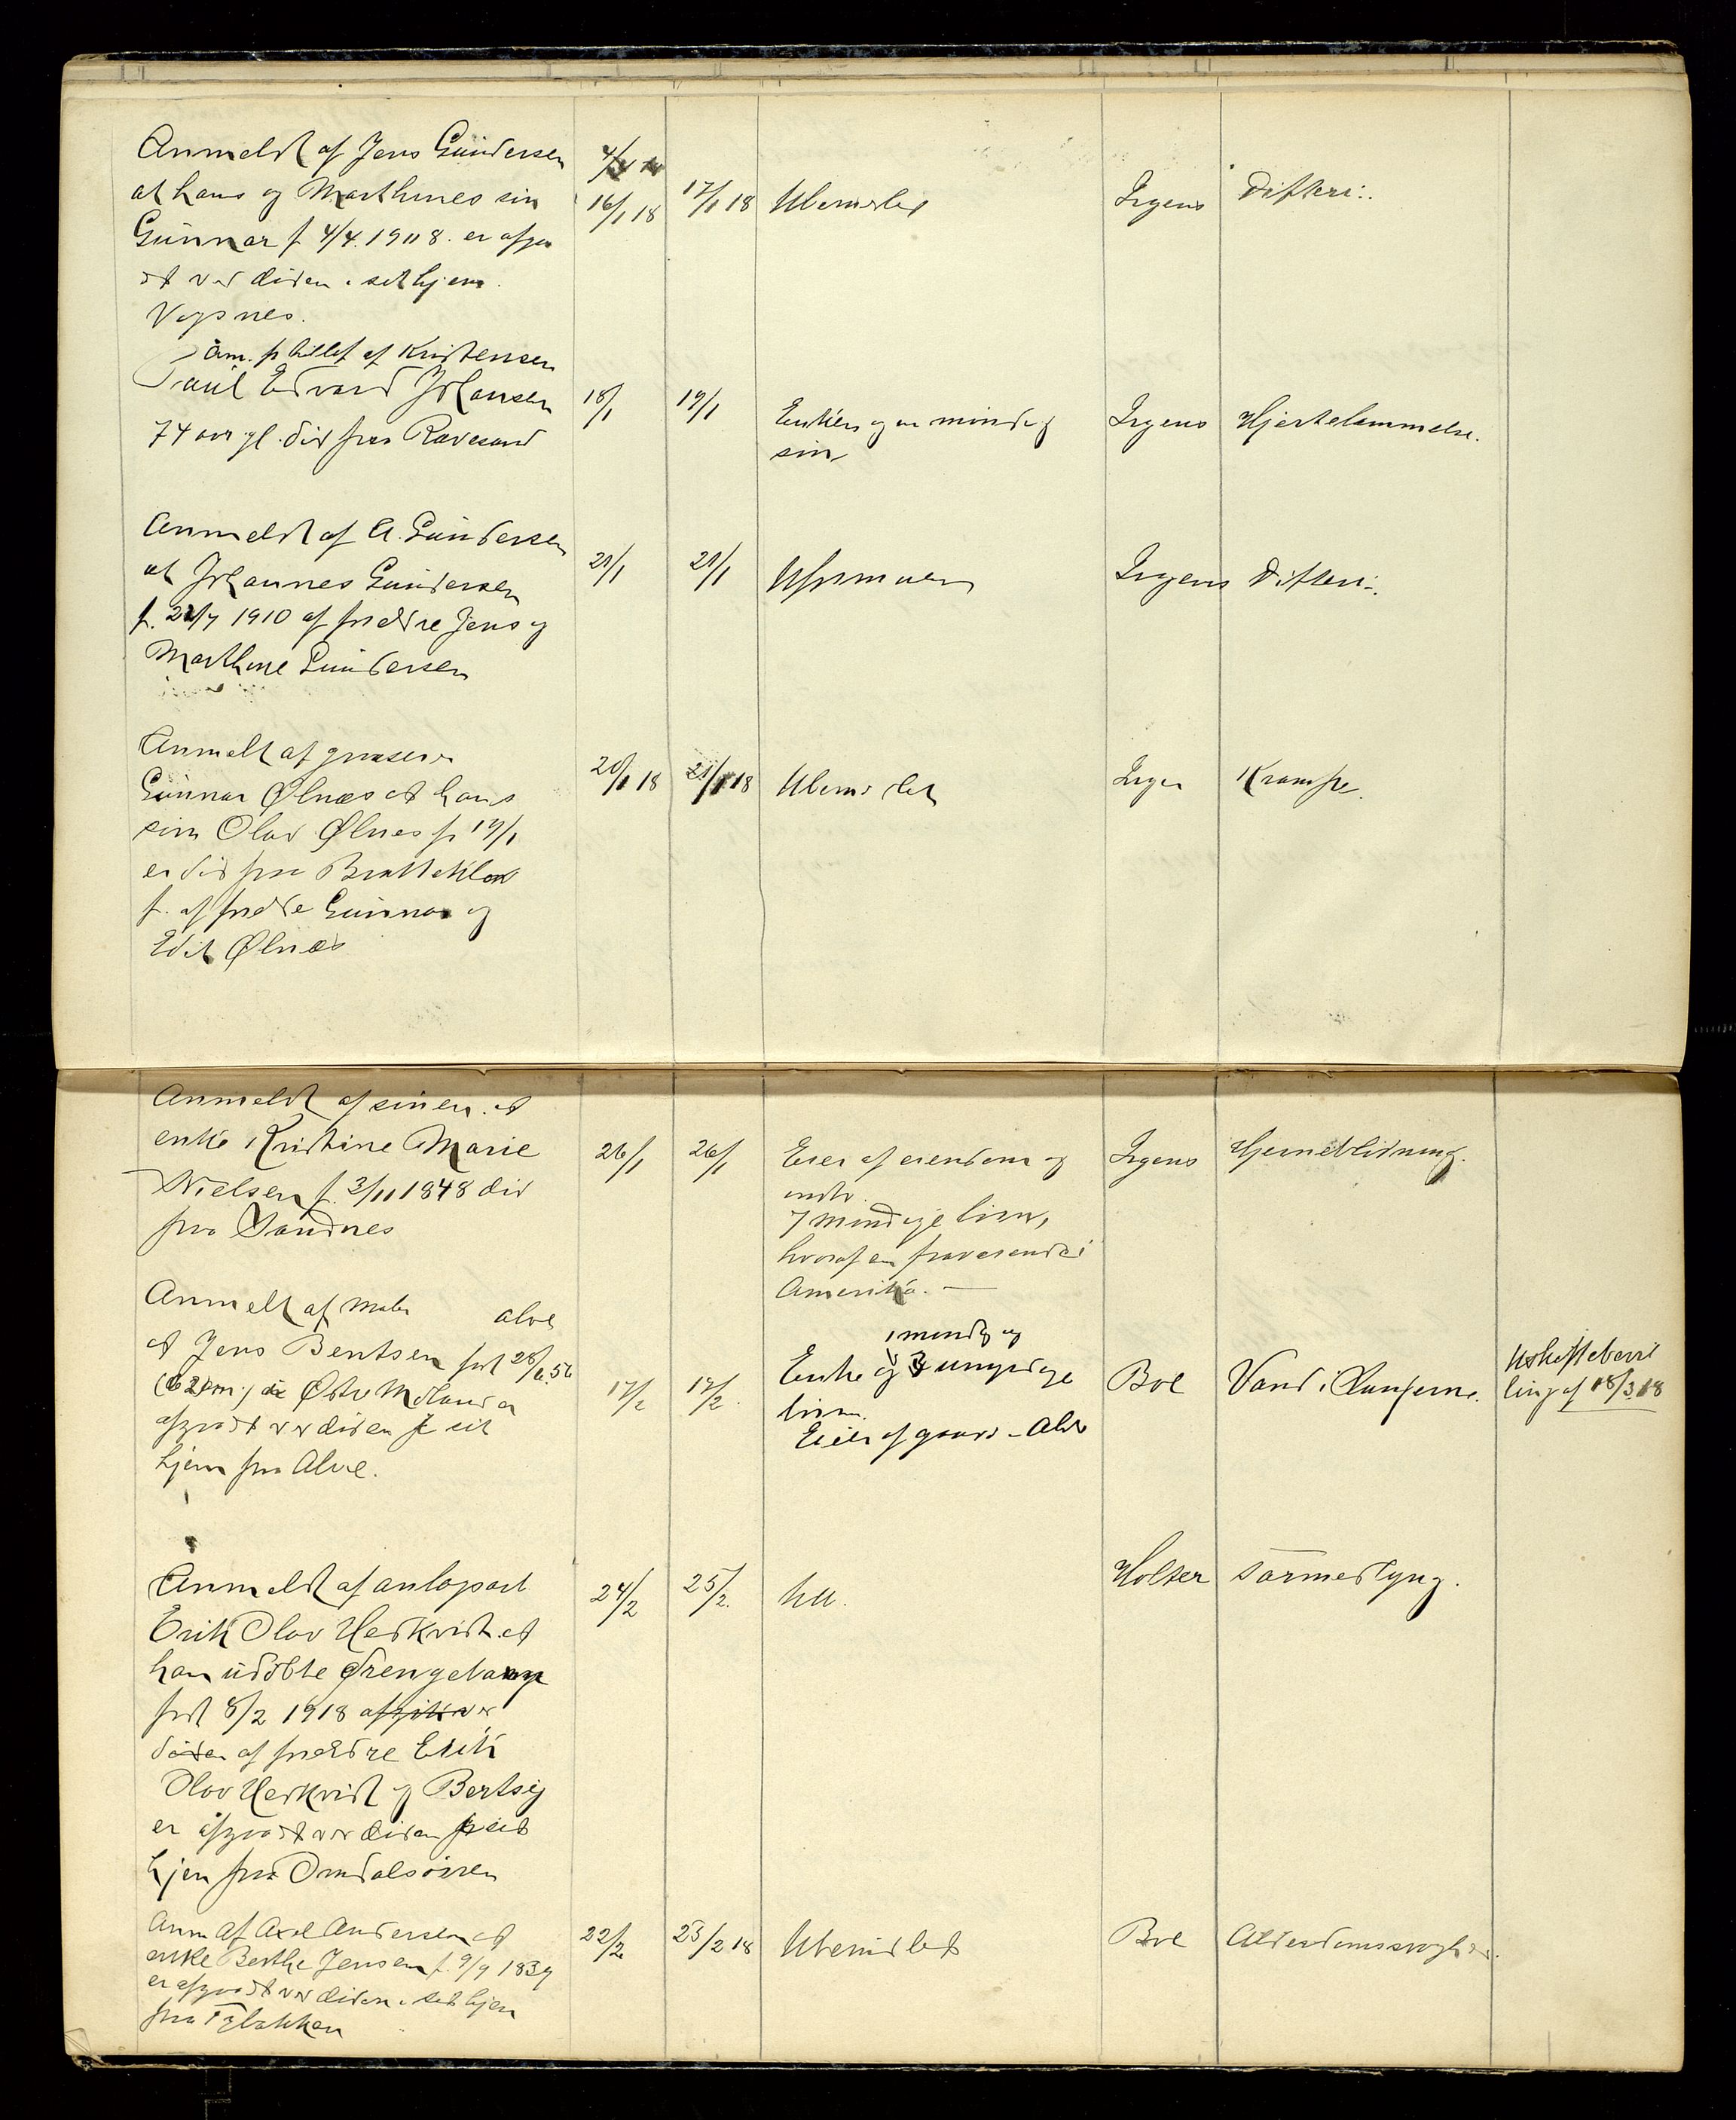 Anmeldt af Jens Gundersen
at hans og Marthines søn
Gunnar f. 4/4 1908 er afgaa
et ved døden i sit hjem
Vogsnes.
16/1 18
17/1 18
Ubemidlet
Irgens
Difteri
Anm. af Kristensen
Paul Edvard Johansen
74 aar gl. død fra Ravesand
18/1
19/1
Enken og en myndig
søn
Irgens
Hjertelammelse.
Anmeldt af A. Gundersen
at Johannes Gundersen
f. 21/7 1910 af forældre Jens og
Marthine Gundersen
21/1
21/1
Uformuen
Irgens
Difteri
Anmelt af grosserer
Gunnar Ølnæs at hans
søn Olav Ølnes f 19/1
er død fra Bratteklev
f. af forældre Gunnar og
Edit Ølnæs
20/1 18
21/1 18
Ubemidlet
Irgen
Krampe.
Anmeldt af sønen at
enke Kristine Marie
Nielsen f. 3/11 1848 død
fra Sandnes
26/1
26/1
Eier af eiendom og
indb.
7 myndige børn,
hvoraf en fraværende i
Amerika. —
Irgens
Hjerneblødning.
Anmelt af maler
Alve
at Jens Bentsen født 28/6.56
Østre Moland er
afgaaet ved døden i sit
hjem fra Alve.
17/2
19/2.
1 myndig og
Enke og 3 umyndige
børn.
Eier af gaard - Alve
Boe
Vand i Lungerne.
Uskiftebevil
ling af 18/3.18
Anmeldt af
Erik Olov Hedkvist at
han udøbte drengebarn
født 8/2 1918 afgået ved
døden af forældre Erik
Olov Hedkvist og Bertsig
er afgaaet ved døden fra sit
hjem fra Omdalsøiren
24/2
25/2.
Holter
Anm af Axel Andersen at
enke Berthe Jensen f. 9/9 1839
er afgaaet ved døden i sit hjem
fra
22/2
23/2 18
Ubemidlet
Boe
Alderdomssvaghed.